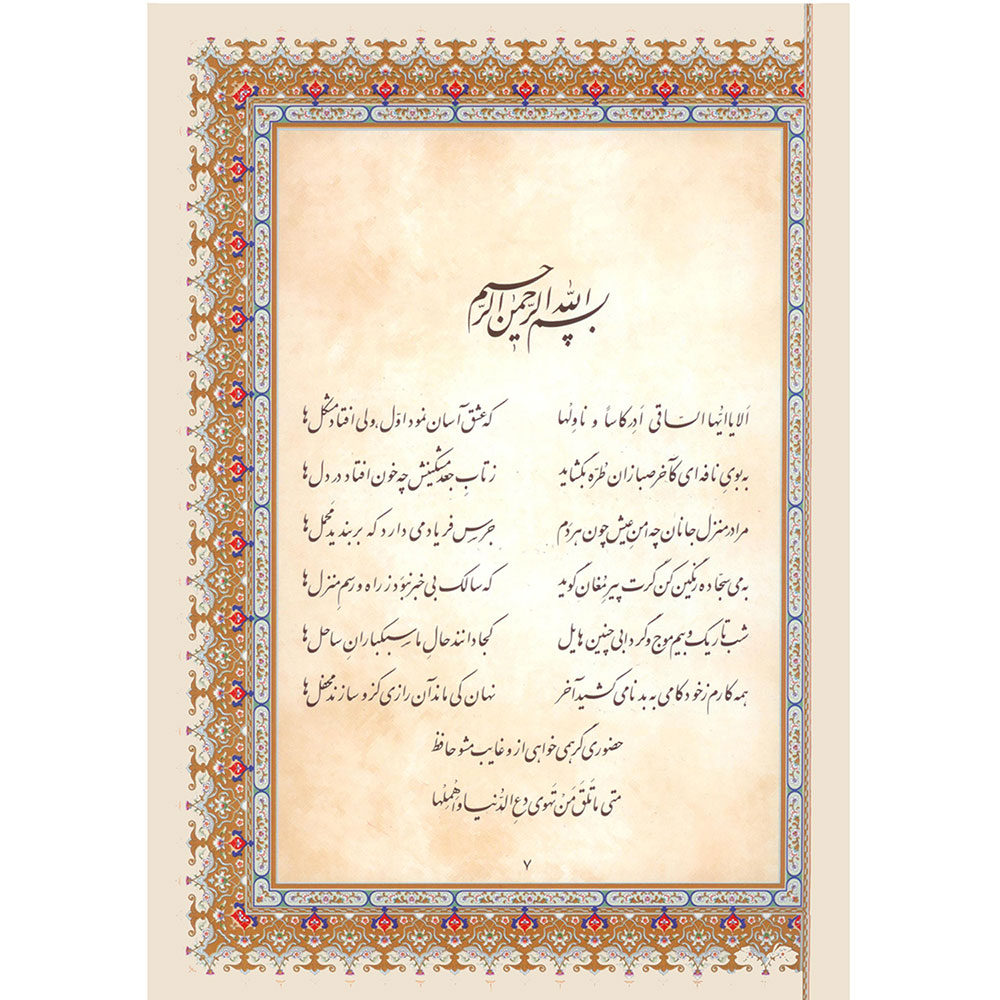 بسم الله الرحمن الرحیم
اَلا یا اَیُّها السّاقی اَدِر کاساً و ناوِلها که عشق آسان نمود اوّل، ولی افتاد مشکل ها
به بویِ نافه ای کآخر صبا زان طُرّه بگشاید ز تابِ جعد مشکینش چه خون افتاد در دل ها
مرا در منزل جانان چه امن عیش چون هر دَم جرس فریاد می دارد که بربندید مَحمِل ها
به می سجّاده رنگین کن گرت پیر مُغان گوید که سالک بی خبر نبوَد ز راه و رسمِ منزل ها
شب تاریک و بیم موج و گردابی چنین هایل کجا دانند حالِ ما سبکبارانِ ساحل ها
همه کارم ز خود کامی به بدنامی کشید آخر نهان کی ماند آن رازی کزو سازند محفل ها
حضوری گر همی خواهی ازو غایب مشو حافظ
متی ما تَلقَ مَنْ تَهوی دَعِ الدُّنیا و اَهمِلْها
۷